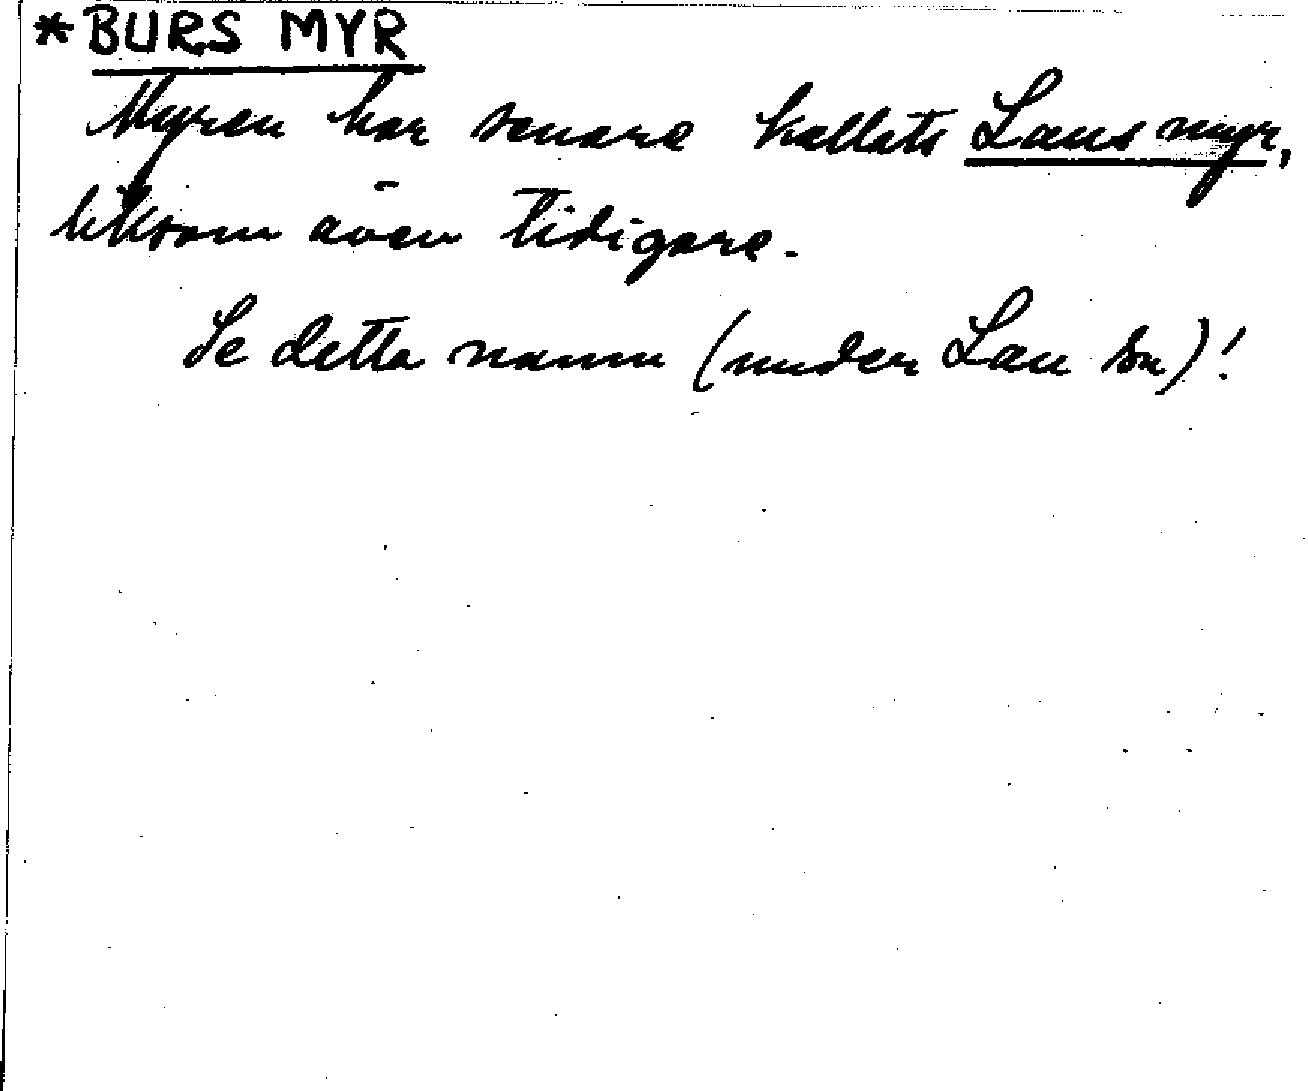 *BURS MYR
Myren har senare kallats Laus myr,
liksom även tidigare.
Se detta namn (under Lau sn)!